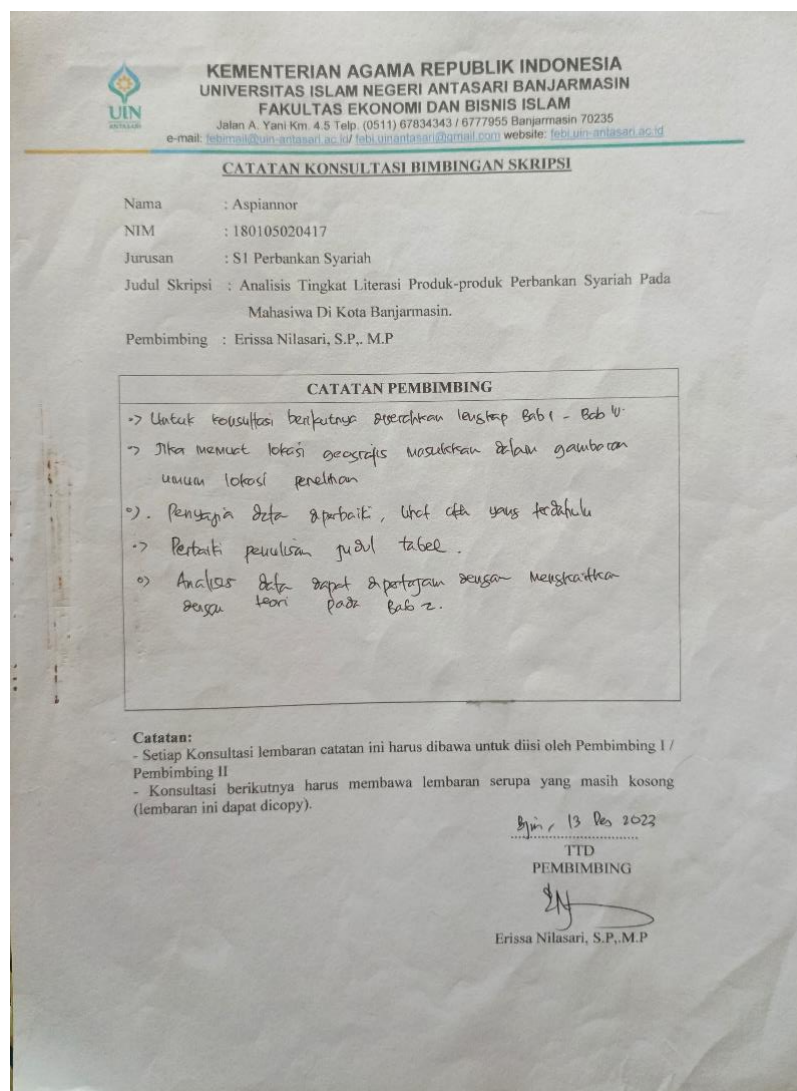 KEMENTERIAN AGAMA REPUBLIK INDONESIA
UNIVERSITAS ISLAM NEGERI ANTASARI BANJARMASIN
FAKULTAS EKONOMI DAN BISNIS ISLAM
UIN
ANTASARI
Jalan A. Yani Km. 4.5 Telp. (0511) 67834343 / 6777955 Banjarmasin 70235
e-mail: febimail@uin-antasari.ac.id/ febi.uinantasari@gmail.com website: febi.uin-antasari.ac.id
CATATAN KONSULTASI BIMBINGAN SKRIPSI
Nama : Aspiannor
NIM : 180105020417
Jurusan : S1 Perbankan Syariah
Judul Skripsi : Analisis Tingkat Literasi Produk-produk Perbankan Syariah Pada
Mahasiwa Di Kota Banjarmasin.
Pembimbing : Erissa Nilasari, S.P,. M.P
CATATAN PEMBIMBING
Untuk konsultasi berikutnya diserahkan lengkap Bab 1 - Bab
Jika memuat lokasi geografis masukkan dalam gambaran
umum lokasi penelitian
Penyajia data diperbaiki, lihat yang terdahulu
Perbaiki penulisan judul tabel.
Analisis data dapat dipertajam dengan mengkaitkan
dengan teori pada Bab 2.
Catatan:
- Setiap Konsultasi lembaran catatan ini harus dibawa untuk diisi oleh Pembimbing I /
Pembimbing II
- Konsultasi berikutnya harus membawa lembaran serupa yang masih kosong
(lembaran ini dapat dicopy).
Bjm, 13 Des 2023
TTD
PEMBIMBING
Erissa Nilasari, S.P,.M.P